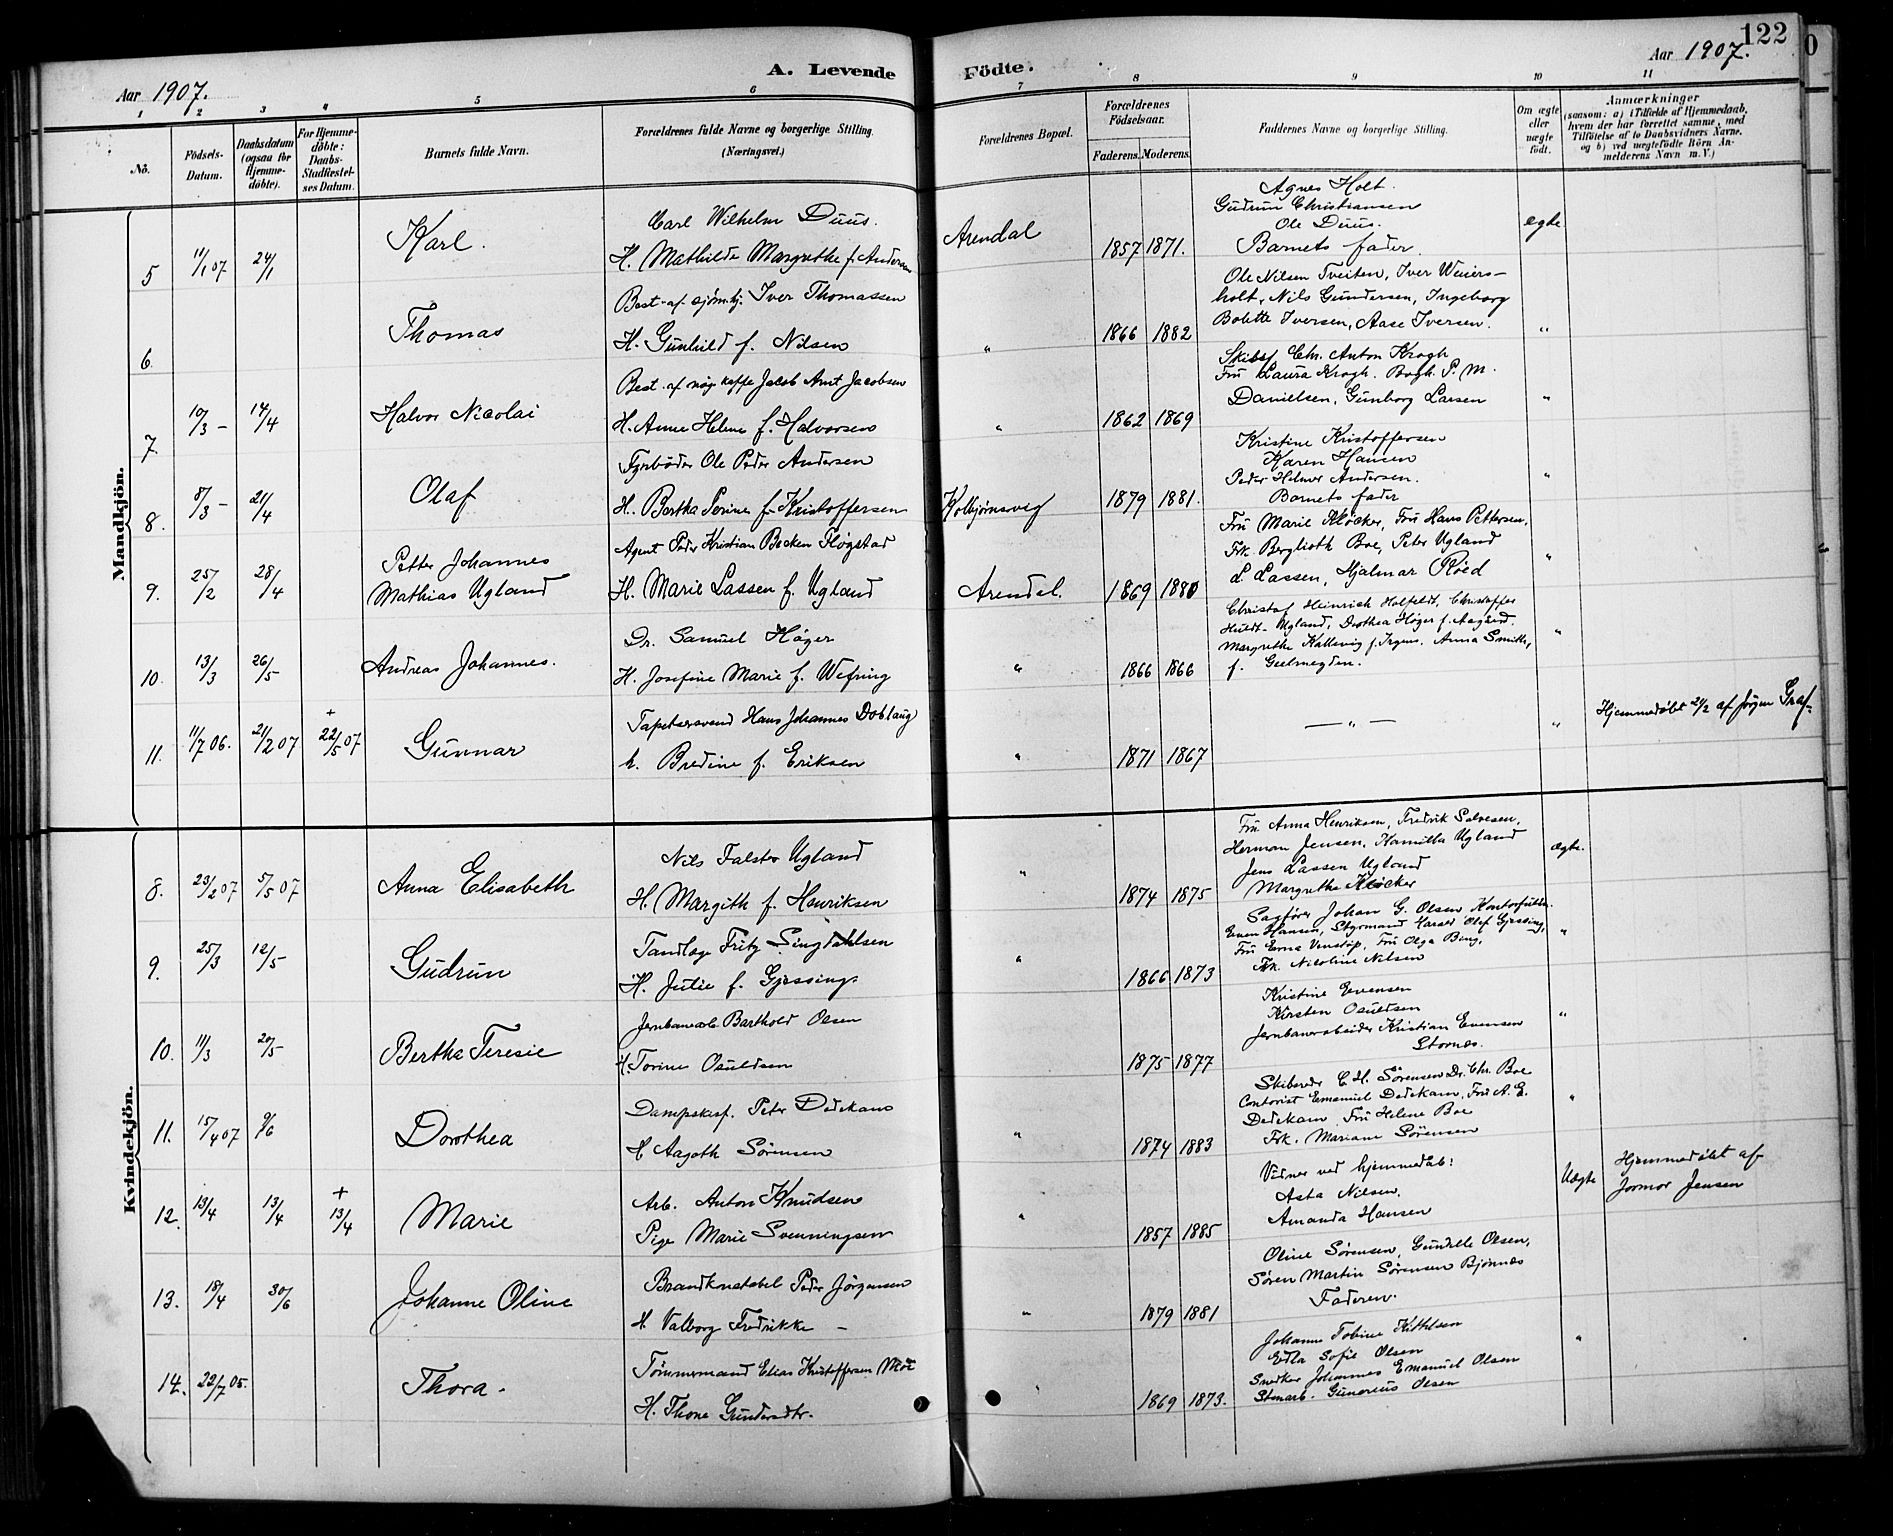 122
Aar 1907.
A. Levende Födte.
Aar 1907.
1 2 3 4 5 6 7 8 9 10 11
No.
Födsels-Datum.
Daabsdatum (ogsaa för Hjemme-döbte).
For Hjemme-döbte: Daabs-Stadfæstel-ses Datum.
Barnets fulde Navn.
Forældrenes fulde Navne og borgerlige Stilling. (Næringsvei.)
Forældrenes Bopæl.
Forældrenes Födselsaar.
Faderens. Moderens.
Faddernes Navne og borgerlige Stilling.
Om ægte eller uægte födt.
Anmærkninger
(saasom: a) i Tilfælde af Hjemmedaab, hvem der har forrettet samme, med Tilföielse af to Daabsvidners Navne, og b) ved uægtefödte Börn An-melderens Navn m. V.)
Mandkjön.
5 11/1 07 24/1 Karl.
Carl Wilhelm Duus.
H. Mathilde Margrethe f. Andersen
Arendal 1857 1871.
Agnes Holt.
Gudrun Christiansen
Ole Duus.
Barnets fader
ægte
6 Thomas
Best. af sjømhj. Iver Thomassen
H. Gunhild f. Nilsen
" 1866 1882
Ole Nilsen Tveiten, Iver Weiers-
holt, Nils Gundersen, Ingeborg
Bolette Iversen, Aase Iversen.
"
7. 10/3 - 14/4 Halvor Nicolai
Best. af nøg. kaffe Jacob Arnt Jacobsen
H. Anne Helene f. Halvorsen
" 1862 1869
Skibsf. Chr. Anton Krogh
Fru Laura Krogh. Bogh. P. M.
Danielsen, Gunborg Larsen
"
8. 8/3 - 21/4 Olaf
Fyrbøder Ole Peder Andersen
H. Bertha Serine f. Kristoffersen
Kolbjørnsvig 1879 1881.
Kristine Kristoffersen
Karen Hansen
Peder Helmer Andersen.
Barnets fader
"
9. 25/2 28/4 Petter Johannes
Mathias Ugland
Agent Peder Kristian Becken Fløgstad
H. Marie Lassen f. Ugland
Arendal. 1869 1880
Fru Marie Kløcker, Fru Hans Pettersen,
Frk. Berglioth Boe, Peter Ugland
L. Lassen, Hjalmar Røed
"
10. 13/3 26/5 Andreas Johannes.
Dr. Samuel Høger
H. Josefine Marie f. Wefring
" 1866 1866
Christof Heinrich Holfeldt, Christoffer
Huldt-Ugland, Dorothea Höger f. Aagaard.
Margrethe Kallevig f. Irgens. Anna Smith,
f. Gielmeyden.
"
11. 11/7 06. 21/2 07 + 22/5 07 Gunnar
Tapetsersvend Hans Johannes Doblaug
h. Bredine f. Eriksen
" 1871 1867
— " —
" Hjemmedøbt 21/2 af Jørgen Graf-
Kvindekjön.
8. 23/2 07 5/5 07 Anna Elisabeth
Nils Falster Ugland
H. Margith f. Henriksen
" 1874 1875
Fru Anna Henriksen, Fredrik Salvesen,
Herman Jensen, Kamilla Ugland
Jens Lassen Ugland
Margrethe Kløcker
ægte.
9. 25/3 12/5 Gudrun
Tandlæge Fritz Singdahlsen
H. Julie f. Gjessing
" 1866 1873
Sagfører Johan G. Olsen Kontorfuldm.
Even Hansen, Styrmand Harald Olaf Gjessing,
Fru Erna Venstøp, Fru Olga Bing,
Frk. Nicoline Nilsen
"
10. 11/3 20/5 Bertha Teresie
Jernbanearb. Barthold Olsen
H. Torine Osuldsen
1875 1877
Kristine Evensen
Kirsten Osuldsen
Jernbanearbeider Kristian Evensen
Stornæs.
"
11. 15/4 07 9/6 Dorothea
Dampskibsf. Peter Dedekam
H. Aagoth Sörensen
" 1874 1883
Skibsreder C. H. Sørensen Dr. Chr. Boe
Contorist Emanuel Dedekam, Fru A. E.
Dedekam, Fru Helene Boe
Frk. Mariane Sørensen
"
12. 13/4 13/4 + 13/4 Marie
Arb. Anton Knudsen
Pige Marie Svenningsen
" 1857 1885
Vidner ved hjemmedåb:
Asta Nilsen.
Amanda Hansen
Uægte
Hjemmedøbt af
Jormor Jensen
13. 18/4 30/6 Johanne Oline
Brandkonstabel Peder Jørgensen
H. Valborg Fredrikke —
" 1879 1881
Oline Sørensen, Gunelle Olsen,
Søren Martin Sørensen Bjønnes
Faderen.
14. 22/7 05. Thora.
Tömmermand Elias Kristoffersen Moe
H. Thone Gundersdtr.
" 1869 1873.
Johanne Tobine Kittelsen
Edla Sofie Olsen
Snedker Johannes Emanuel Olsen
Stenarb. Gunerius Olsen
"